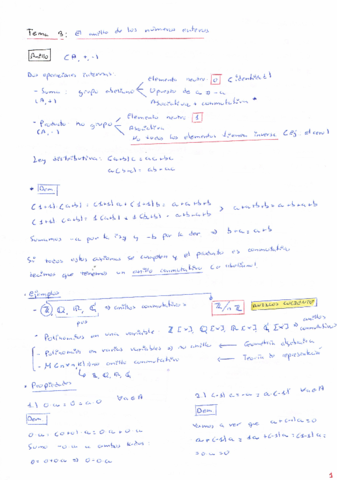 Tema 3: El anillo de los números enteros
Anillo (A, +, ·)
Dos operaciones internas:
- Suma: grupo abeliano
(A, +)
Elemento neutro: 0 (identidad)
Opuesto de a es -a
Asociativa + conmutativa *
- Producto no grupo
(A, ·)
Elemento neutro: 1
Asociativa
No todos los elementos tienen inverso (ej. el cero)
Ley distributiva: (a+b)c = ac+bc
a(c+b) = ac+ab
* Dem
(1+1)(a+b) = (1+1)a + (1+1)b = a+a+b+b
(1+1)(a+b) = 1(a+b) + 1(a+b) = a+b+a+b
a+a+b+b = a+b+a+b
Sumamos -a por la izq y -b por la der → b+a = a+b
Si todos estos axiomas se cumplen y el producto es conmutativo
tenemos que tenemos un anillo conmutativo
· Ejemplos
- ℤ, ℚ, ℝ, ℂ → anillos conmutativos
ℤ/nℤ
ANILLOS COCIENTE
- Polinomios en una variable: ℤ[x], ℚ[x], ℝ[x], ℂ[x] → anillos conmutativos
- Polinomios en varias variables → anillo ← Geometría algebraica
no anillo conmutativo ← Teoría de representación
ℤ, ℚ, ℝ, ℂ
· Propiedades
1) 0·a = 0 = a·0 ∀a∈A
Dem
0·a = (0+0)·a = 0·a + 0·a
Sumo -0·a a ambos lados:
0 = 0+0·a → 0 = 0·a
2) (-1)a = -a = a(-1) ∀a∈A
Dem
Vamos a ver que a+(-1)a = 0
a+(-1)a = 1a+(-1)a = (1-1)a =
= 0·a = 0
1